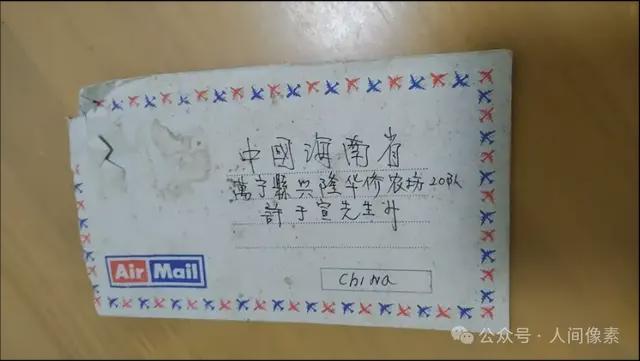 中國海南省
萬宁縣兴隆华侨农场20队
許于宣先生升
Air Mail
China
公众号·人间像素